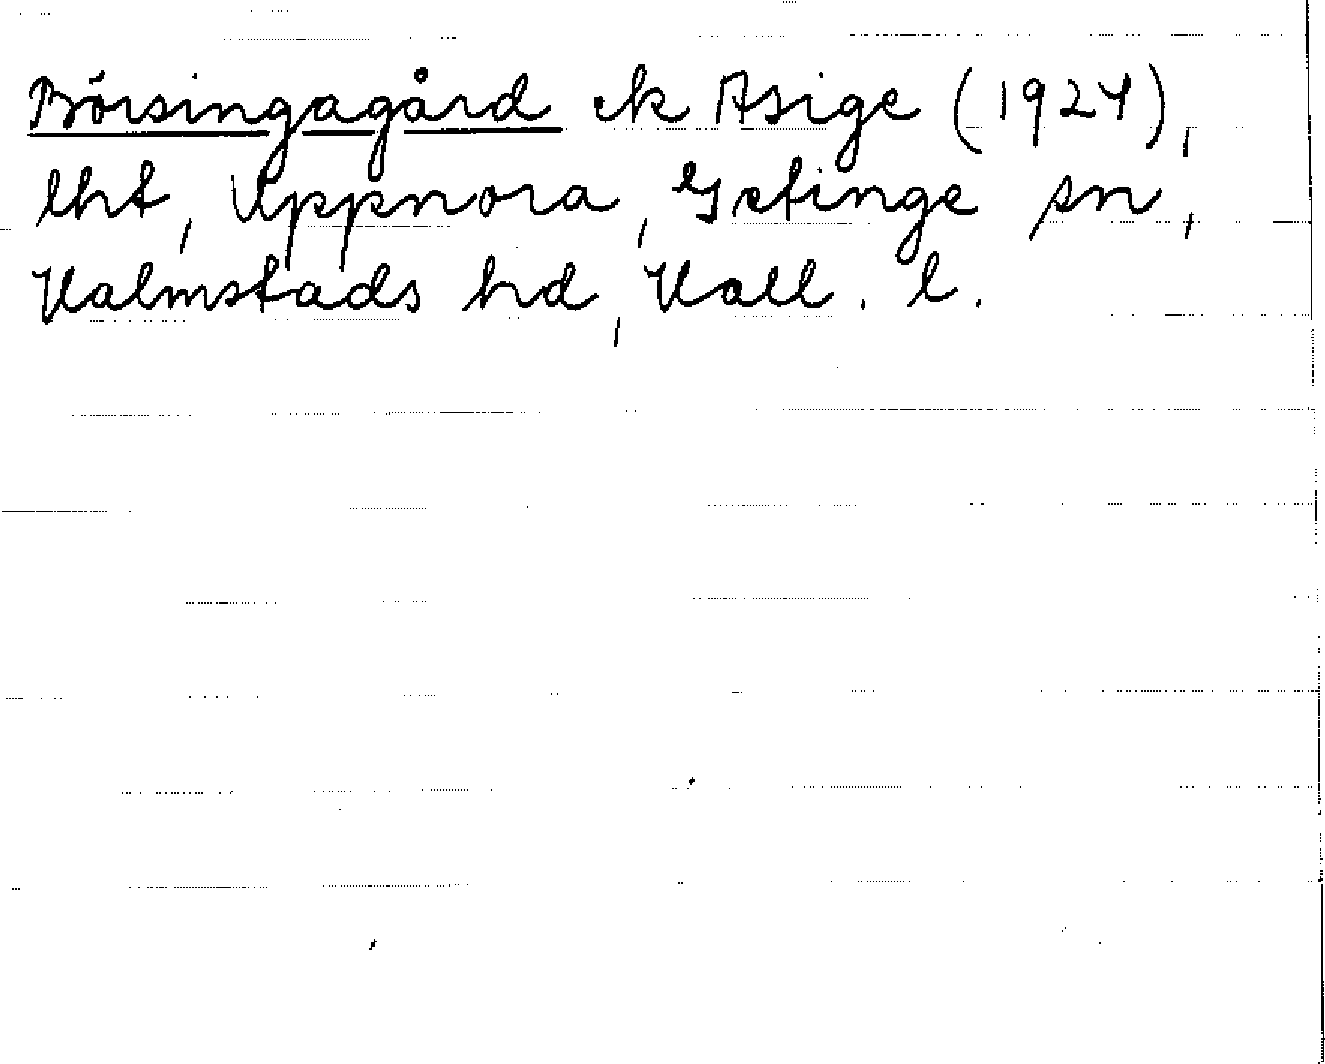 Börsingagård ek Asige (1924),
lht, Uppnora, Getinge sn,
Halmstads hd, Hall. l.